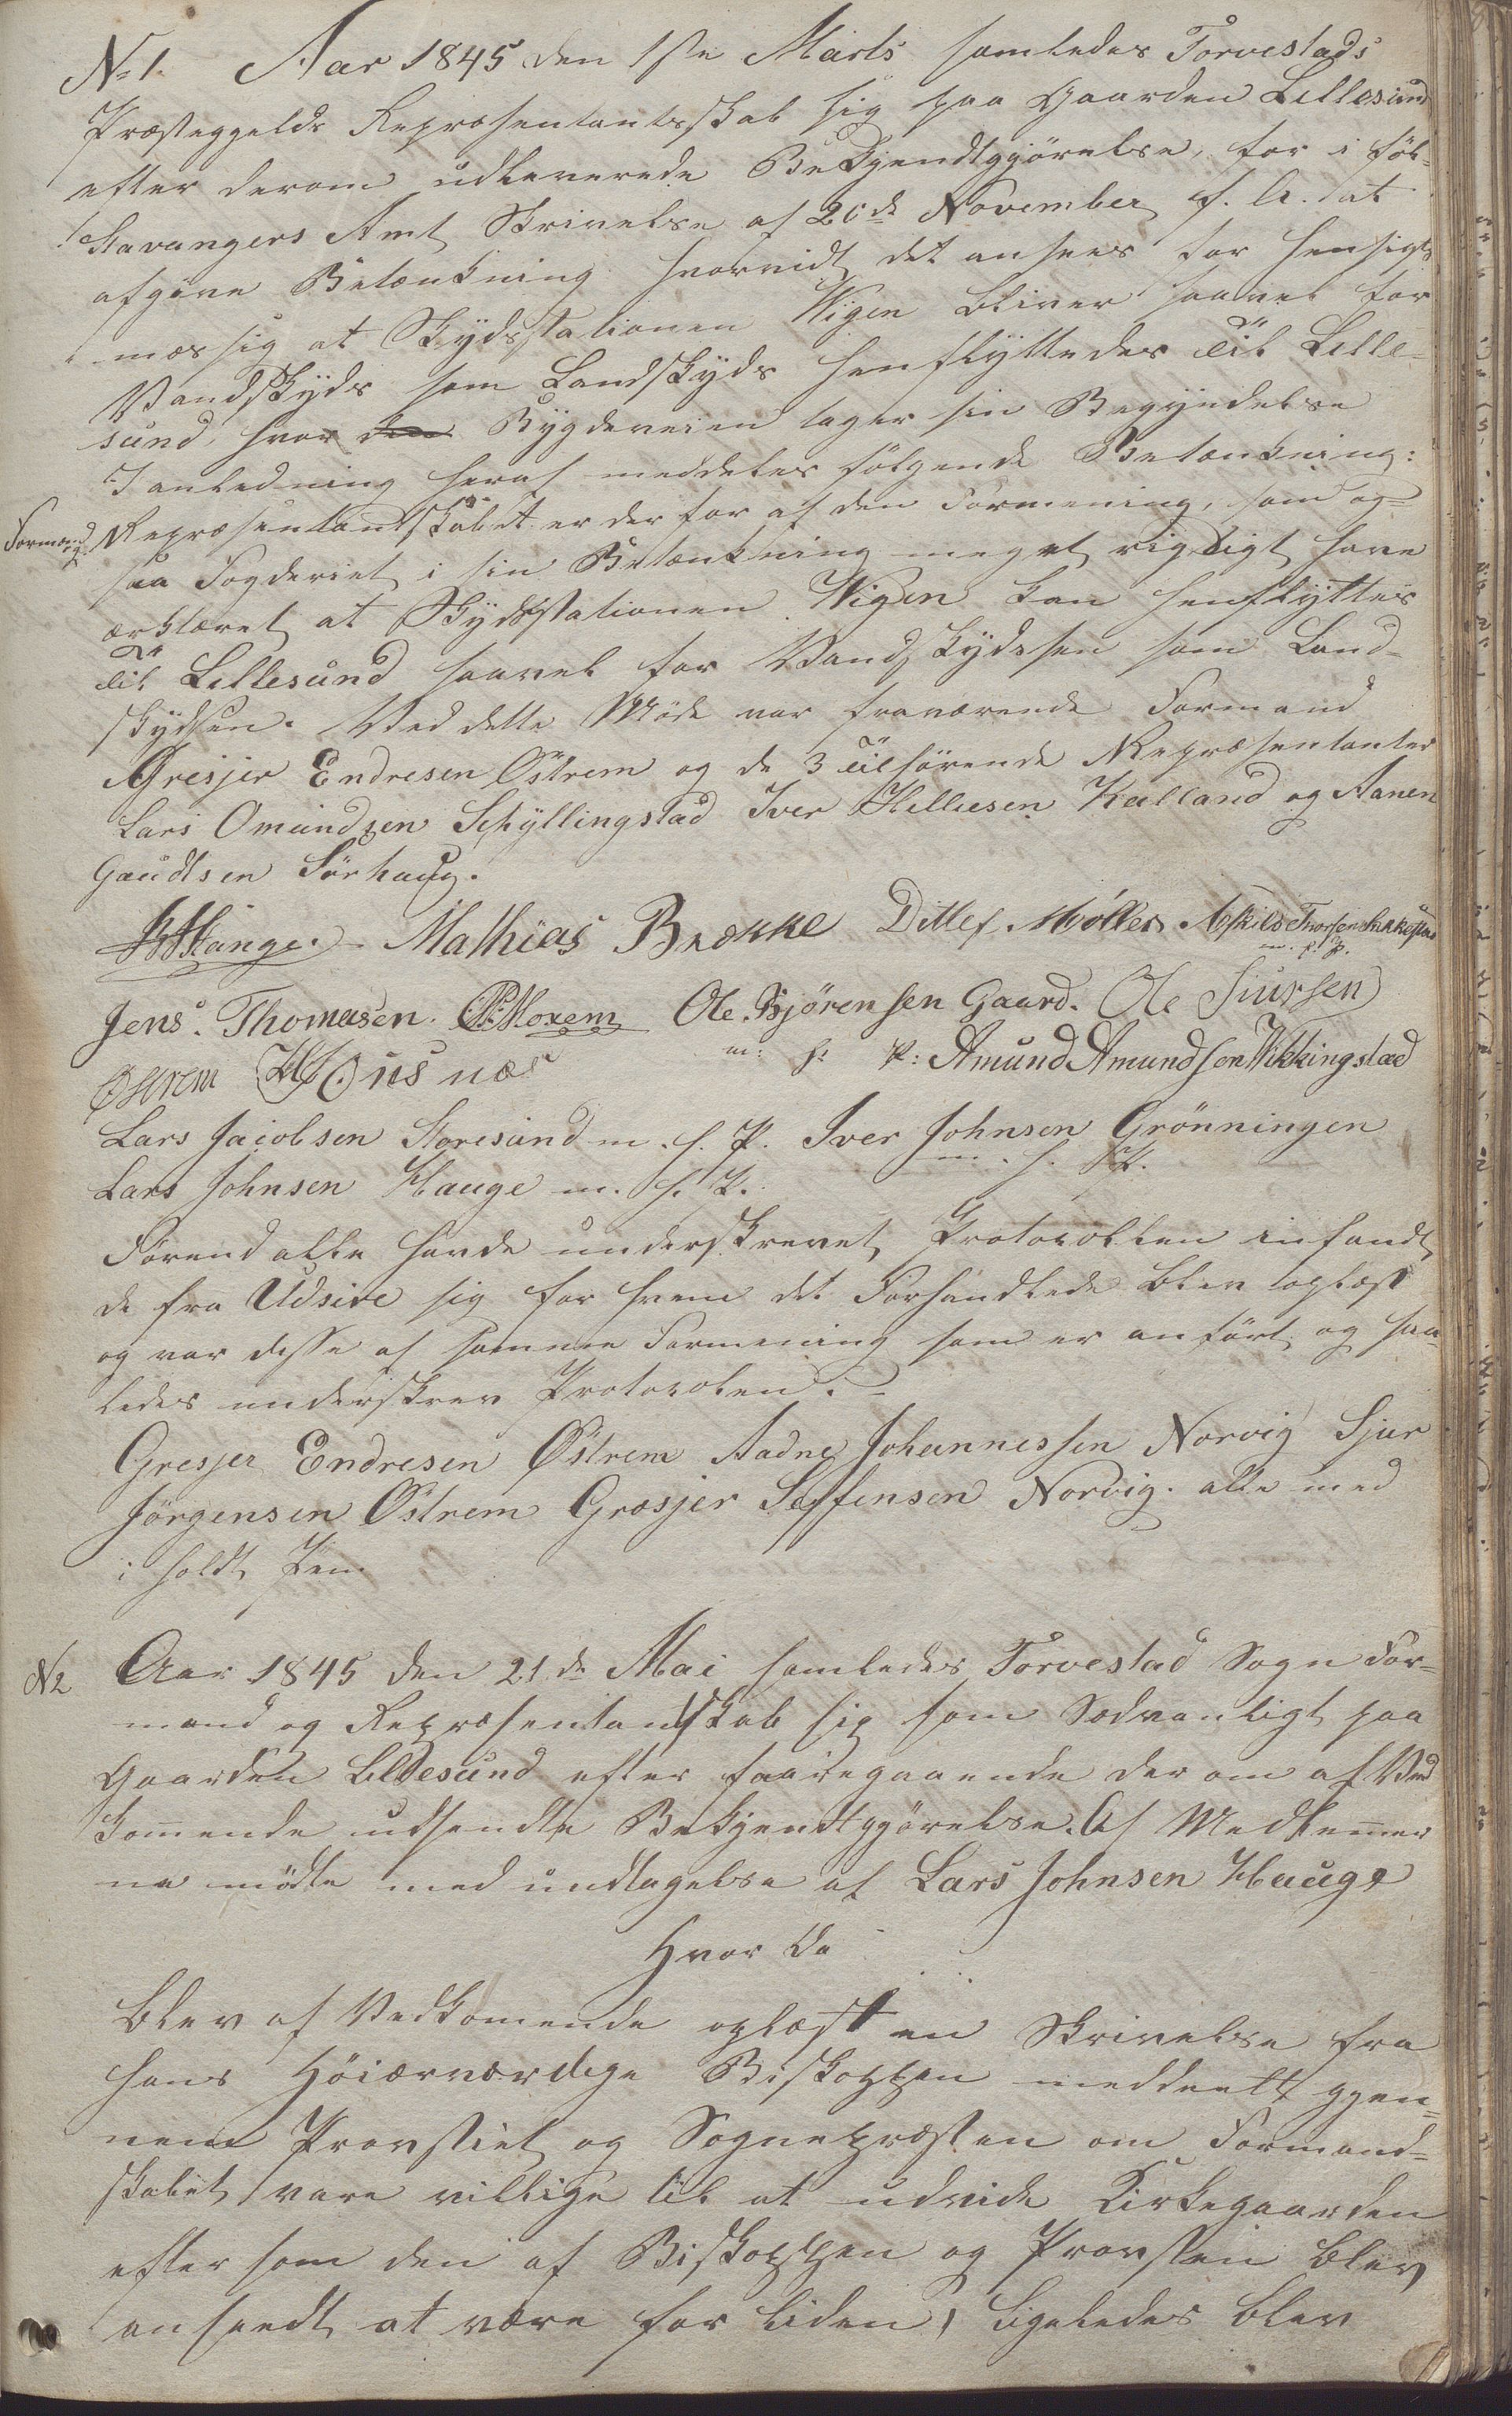 No 1. Aar 1845 den 1ste Marts samledes Torvestads
Præsteggelds Repræsentantsskab sig paa Gaarden Lillesund
efter derom udleverede Bekjendtgjörelse, for i föl-
Stavangers Amt Skrivelse af 20de November f. A. at
afgive Betænkning hvorvidt det ansees for hensigt
mæssig at Skydsstationen Wigen bliver saavel for
Vandskyds som Landskyds henflyttedes til Lille-
sund, hvor den Bygdeveien tager sin Begyndelse
I anledning heraf meddeles fölgende Betænkning:
Formænd og Repræsentantskabet er derfor af den Formening, som og-
saa Fogderiet i sin Betænkning meget rigtigt have
erklæret at Skydsstationen Wigen kan henflyttes
til Lillesund saavel for Vandskydssen som Land-
skydsen. Ved dette Möde var fraværende Formand
Gresjer Endresen Östrem og de 3 tilhörende Repræsentanter
Lars Omundsen Schyllingstad Iver Helliesen Kalland og Aanen
Gaudtsen Sörhaug.
Stange. Mathias Brække Ditlef Møller Askild Thorsen
m. f. P.
Jens. Thomasen. Moxem Ole. Björensen Gaard. Ole Siursen
Østrem Husnæs m: f: P: Amund Amundsen Wikkingstad
Lars Jacobsen Storesund m. f. P. Iver Johnsen Grönningen
Lars Johnsen Hauge m. f. P. m. f. P.
Förend alle havde underskrevet Protocollen infandt
de fra Udsire sig for hvem det Forhandlede blev oplæst
og var disse af samme Formening som er anfört og saa-
ledes underskrev Protocolen.
Gresjer Endresen Östrem Aadne Johannessen Norvig Sjur
Jörgensen Östrem Græsjer Seffensen Norvig. alle med
i holdt Pen
N 2 Aar 1845 den 21de Mai samledes Torvestad Sogn For-
mand og Repræsentantskab sig som Sædvanligt paa
Gaarden Lillesund efter foregaaende der om af Ved
kommende udsendte Bekjendtgjörelse. Af Medlemmer
ne mödte med undtagelse af Lars Johnsen Hauge
Hvor Da
blev af Vedkomende oplæst en Skrivelse fra
hans Höiærværdige Biskoppen meddeelt gjen-
nem Provstiet og Sognepræsten om Formand-
skabet vare villige til at udvide Kirkegaarden
efter som den af Biskoppen og Provsten blev
anseedt at være for liden, ligeledes blev